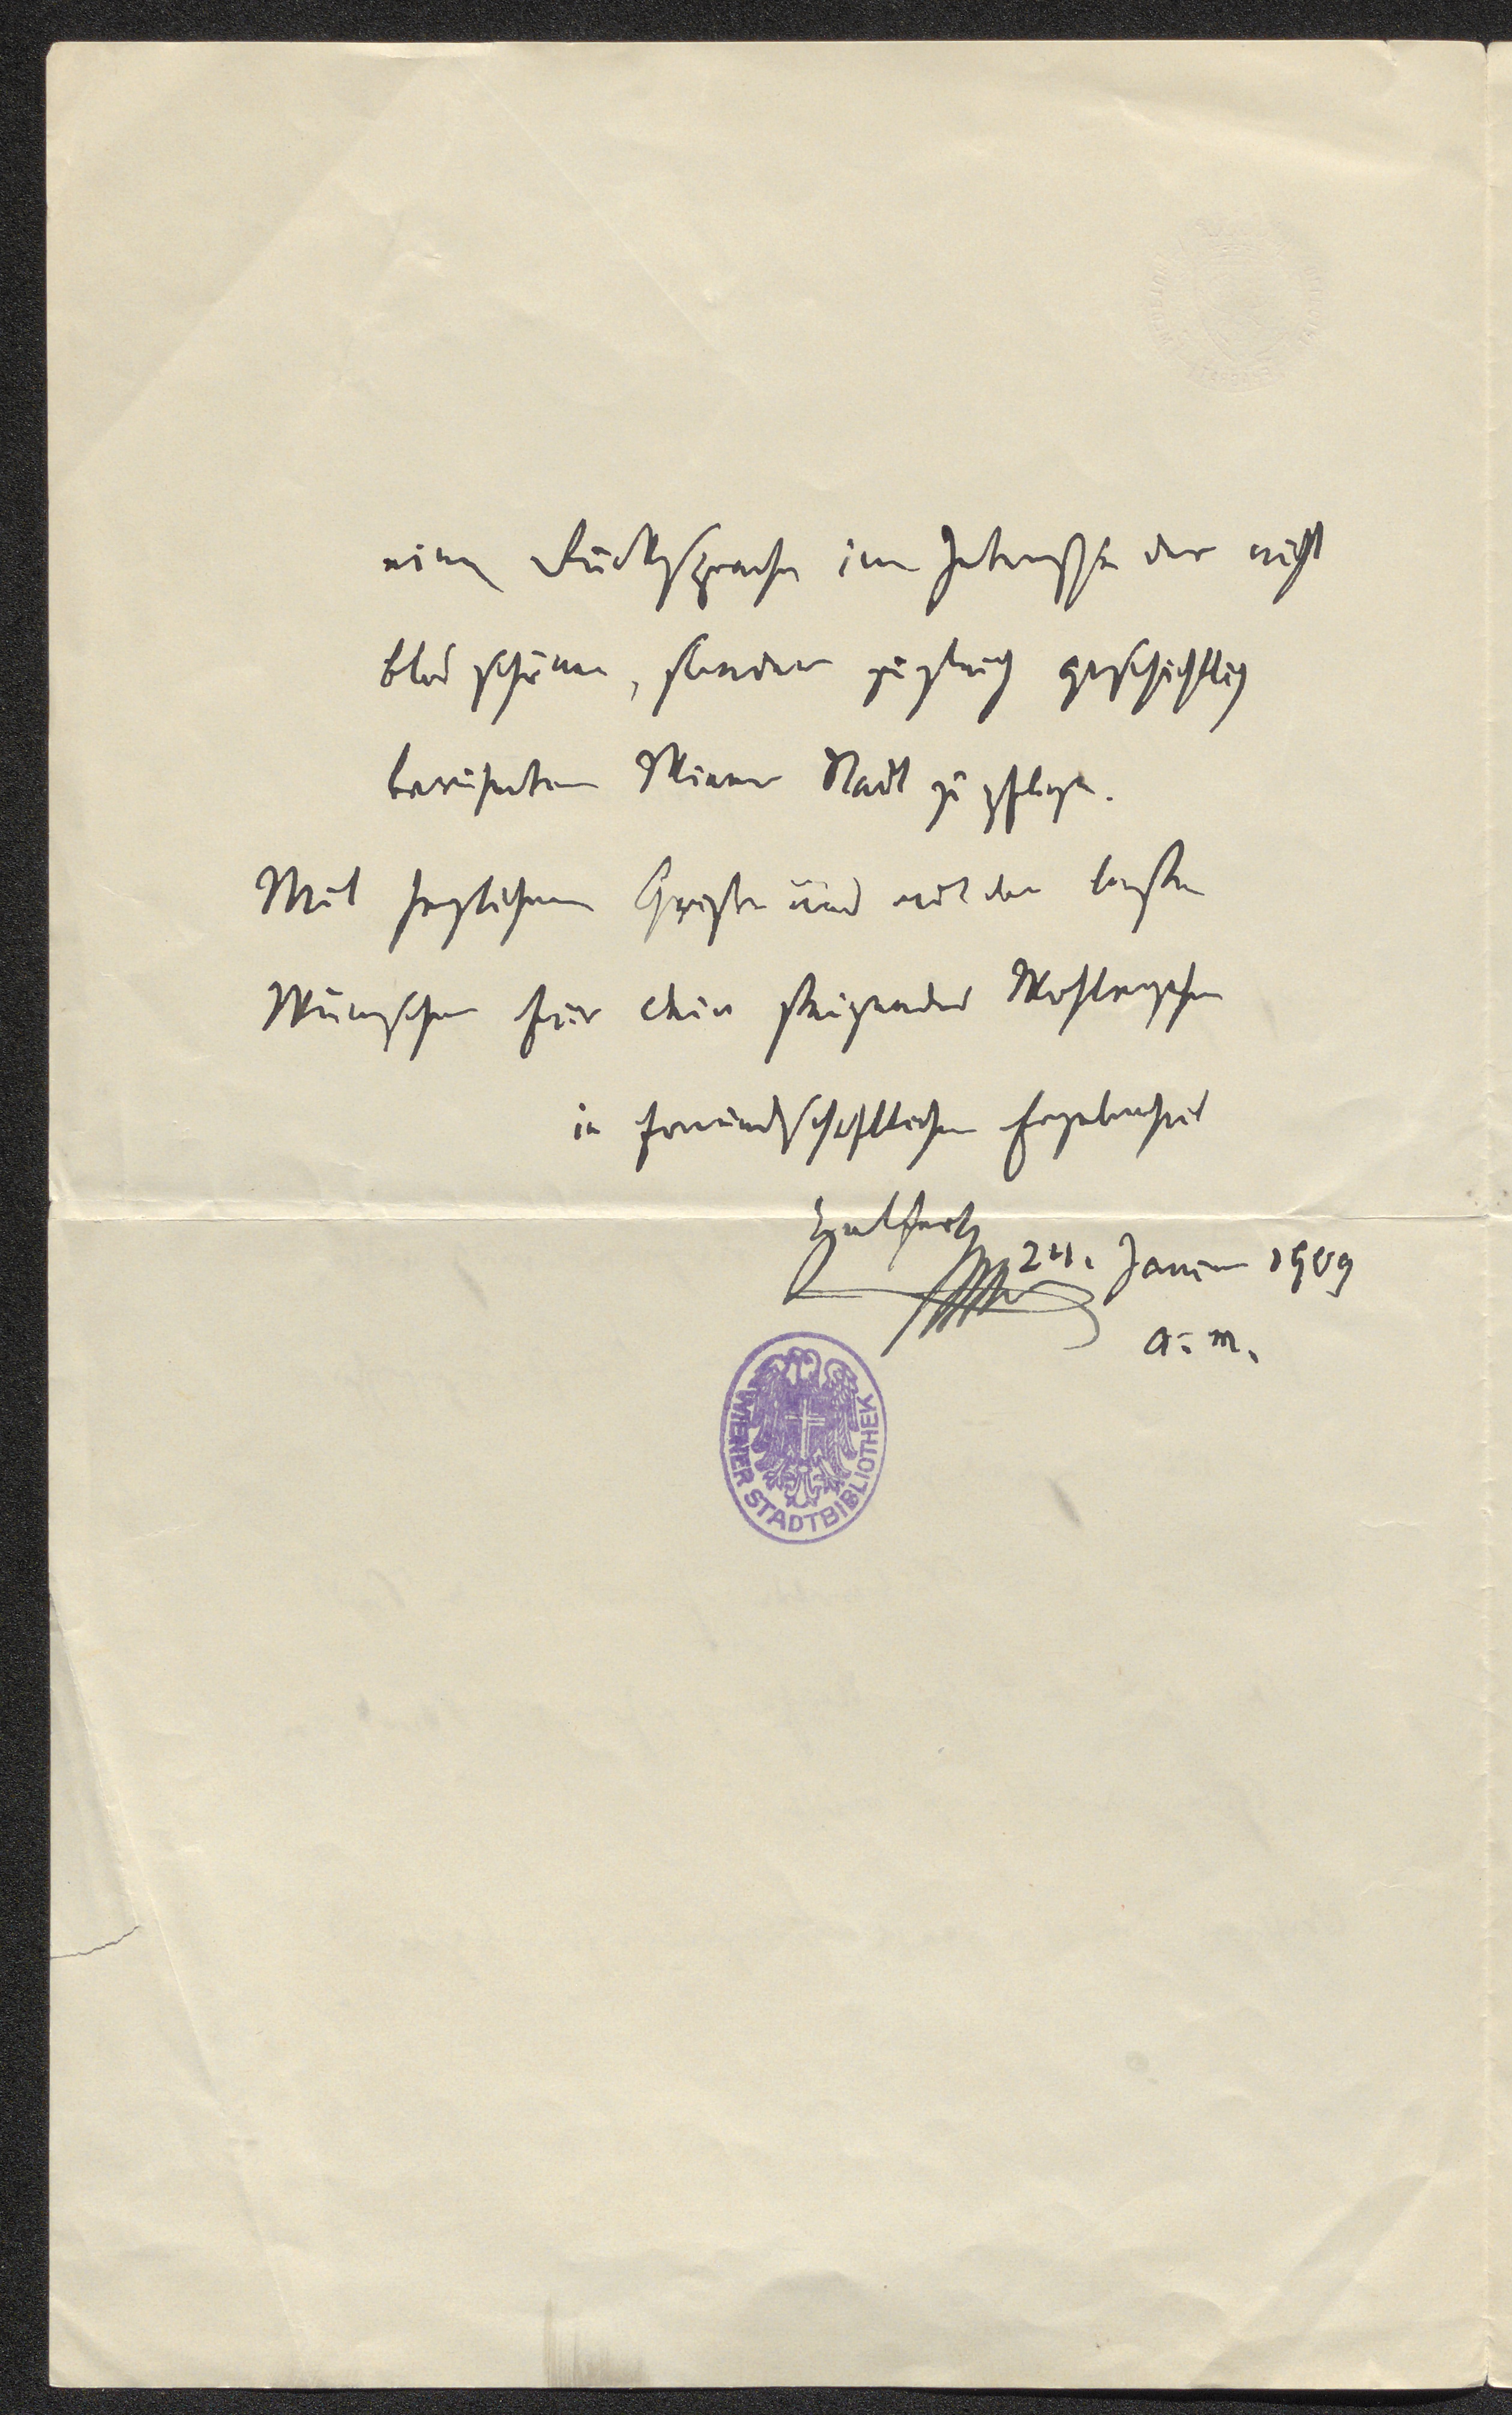 einer Rücksprache im Interesse der nicht
blos schönen, sondern zugleich geschichtlich
berühmten Wiener Stadt zu pflegen.
Mit herzlichem Gruße und mit den besten
Wünschen für Dein steigendes Wohlergehen
in freundschaftlicher Ergebenheit
Helfert
24. Januar 1909
a. m.
WIENER STADTBIBLIOTHEK